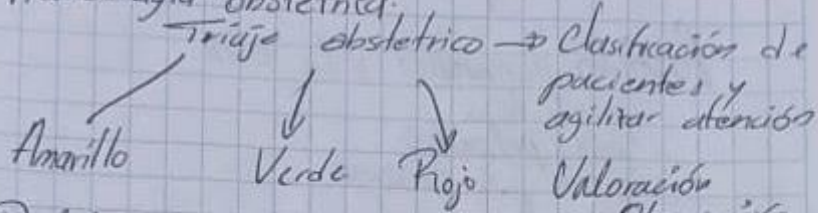 obstetricia.
Triaje obstetrico → Clasificación de
pacientes y
agilizar atención
Amarillo Verde Rojo Valoración